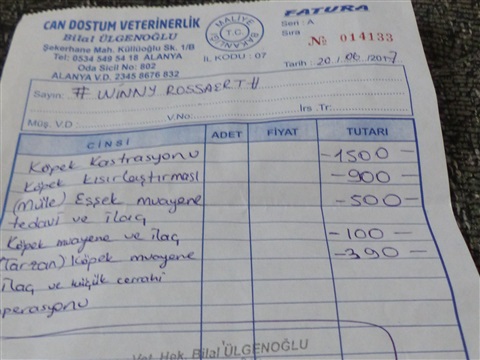 CAN DOSTUM VETERİNERLİK
Bilal ÜLGENOĞLU
Şekerhane Mah. Küllüoğlu Sk. 1/B
Tel: 0534 549 54 18 ALANYA
Oda Sicil No: 802
ALANYA V.D. 2345 8676 832
MALİYE
T.C.
BAKANLIĞI
İL KODU : 07
FATURA
Seri : A
Sıra
№ 014133
Tarih : 20/06/2017
Sayın: # WINNY ROSSAERT #
Müş. V.D. V.No: İrs. Tr.
CİNSİ ADET FİYAT TUTARI
Köpek Kastrasyonu -1500-
Köpek kısırlaştırması -900-
(Mule) Eşşek muayene -500-
tedavi ve ilaç
Köpek muayene ve ilaç -100-
(Tarzan) Köpek muayene -390-
ilaç ve küçük cerrahi
operasyonu
Vet. Hek. Bilal ÜLGENOĞLU